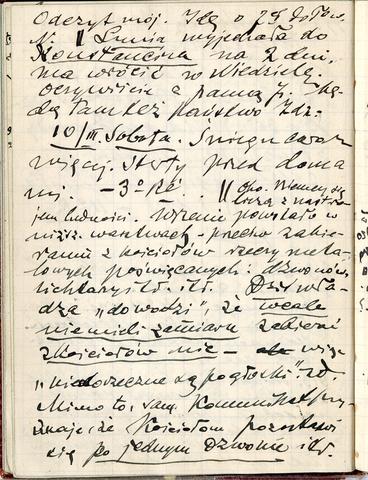 Odczyt mój. Idę o 7½
N. || Lunia wyjechała do
Konstancina na 2 dni,
ma wrócić w Niedzielę.
Oczywiście z panną J.
dą tamteż państwo Zdz.
10/III. Sobota. Śniegu coraz
więcej. Stoty przed doma
mi. – 3° Ré. || Niemcy się
liczą z nastro
jem ludności. Wrzenie powstało w
niższ. warstwach – przeciw zabie-
raniu z kościołów rzeczy meta-
lowych poświęcanych: dzwonów,
lichtarzy itd. itd. Dziś wła-
dza „dowodzi”, że wcale
nie mieli zamiaru zabierać
z kościołów nic – więc
„niedorzeczne są pogłoski” itd
Mimo to, sam Komunikat przy-
znaje, że Kościołom pozostawi
się po jednym dzwonie itd.